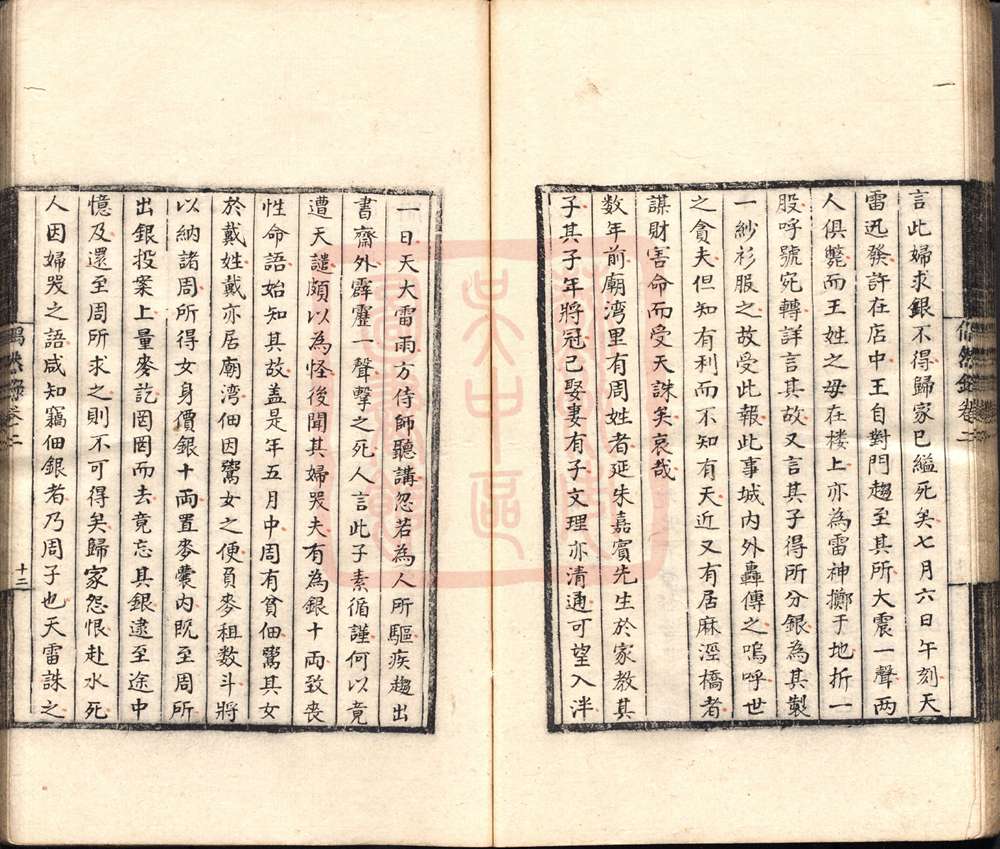 言此婦求銀不得歸家已縊死矣七月六日午刻天
雷迅發許在店中王自對門趨至其所大震一聲兩
人俱斃而王姓之母在楼上亦為雷神擲于地折一
股呼號宛轉詳言其故又言其子得所分銀為其製
一紗衫服之故受此報此事城内外轟傳之嗚呼世
之貪夫但知有利而不知有天近又有居麻涇橋者
謀財害命而受天誅矣哀哉
数年前廟湾里有周姓者延朱嘉賓先生於家教其
子其子年將冠已娶妻有子文理亦清通可望入泮
偶然錄卷二
一日天大雷雨方侍師聽講忽若為人所驅疾趨出
書齋外霹靂一聲擊之死人言此子素循謹何以竟
遭天譴頗以為怪後聞其婦哭夫有為銀十両致丧
性命語始知其故盖是年五月中周有貧佃鬻其女
於戴姓戴亦居廟湾佃因鬻女之便負麥租数斗將
以納諸周所得女身價銀十両置麥囊内既至周所
出銀投案上量麥訖罔罔而去竟忘其銀逮至途中
憶及還至周所求之則不可得矣歸家怨恨赴水死
人因婦哭之語咸知竊佃銀者乃周子也天雷誅之
偶然錄卷二
十二